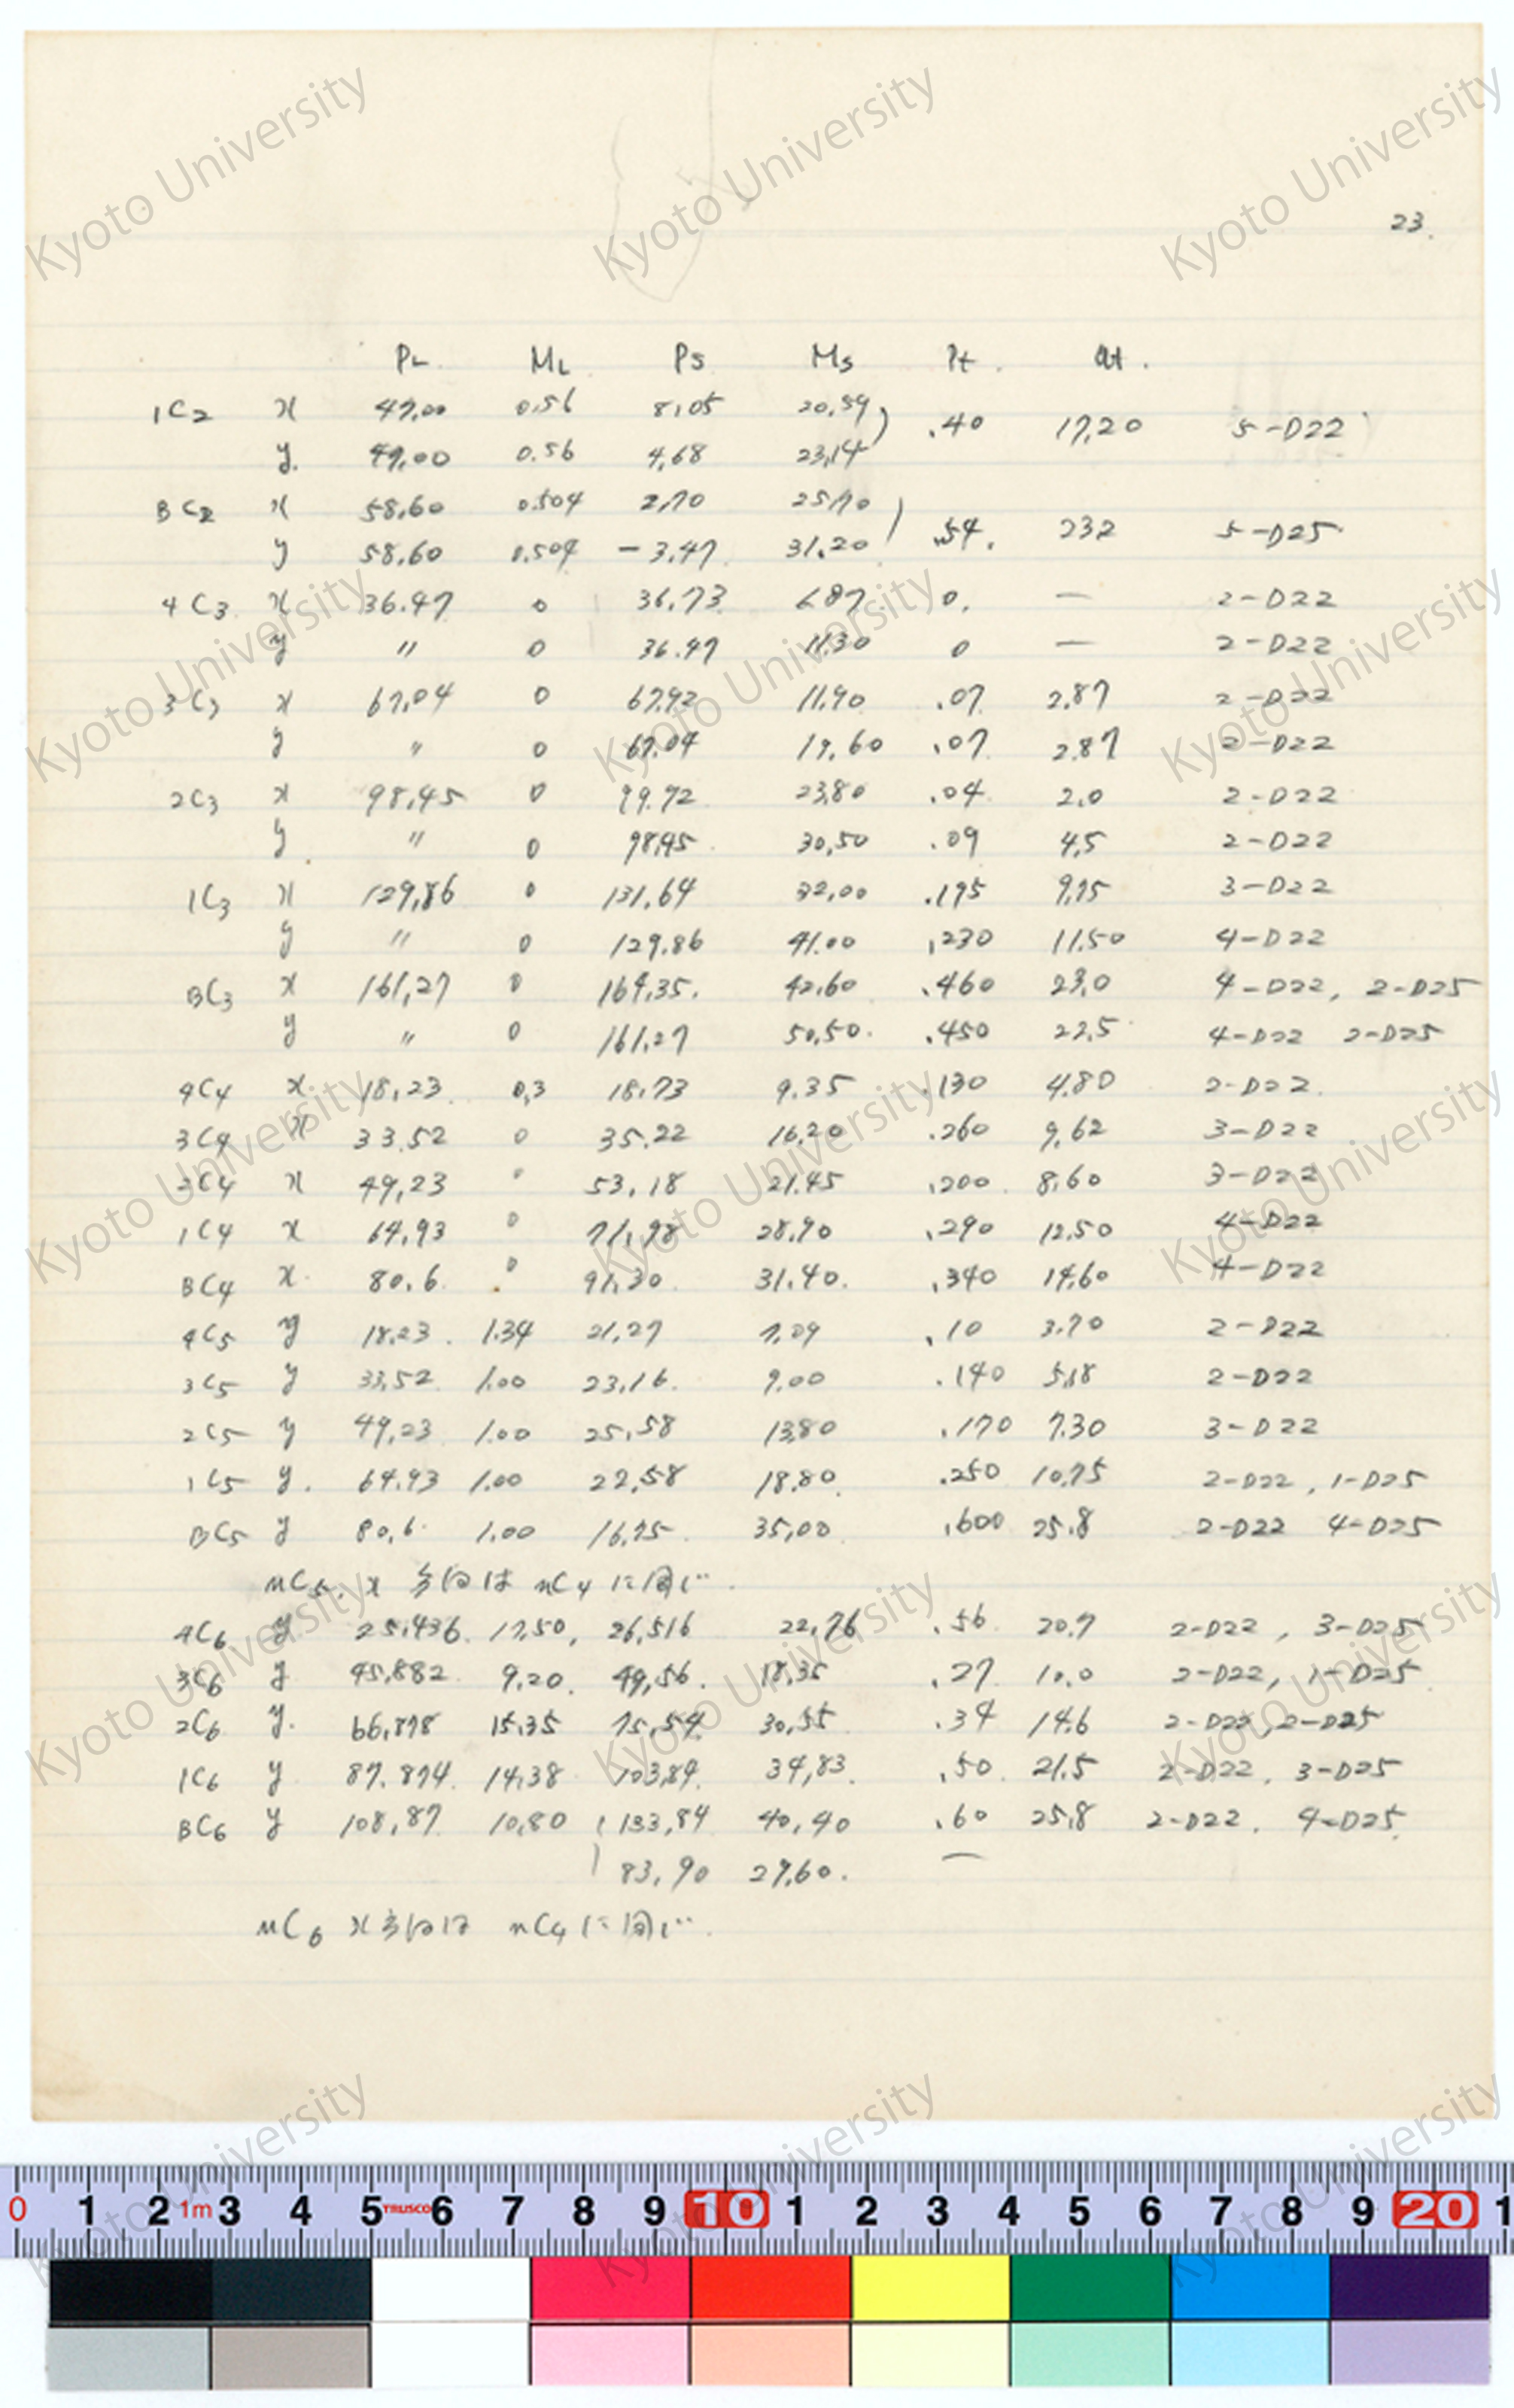 23.
PL ML Ps Ms Pt at.
1C2 x 47,00 0,56 8,05 20,59 ) .40 17,20 5-D22
y. 47,00 0.56 4,68 23,14
BC2 x 58,60 0.504 2,70 25,70 ) .54. 232 5-D25
y 58,60 0.504 -3,47 31,20
4C3 x 36.47 0 36,73 687 0. — 2-D22
y 〃 0 36.47 11,30 0 — 2-D22
3C3 x 67,04 0 67,92 11,90 .07 2,87 2-D22
y 〃 0 67.04 17,60 .07 2.87 2-D22
2C3 x 98,45 0 99.72 23,80 .04 2,0 2-D22
y. 〃 0 98,45 30,50 .09 4,5 2-D22
1C3 x 129,86 0 131,64 32,00 .195 9,75 3-D22
y 〃 0 129.86 41.00 .230 11.50 4-D22
BC3 x 161,27 0 164,35. 42,60 .460 23,0 4-D22, 2-D25
y 〃 0 161,27 50,50. .450 22,5 4-D22 2-D25
4C4 x 18,23 0,3 18,73 9.35 .130 4,80 2-D22.
3C4 x 33.52 0 35.22 16,20 .260 9,62 3-D22
2C4 x 49,23 〃 53,18 21.45 .200 8,60 3-D22
1C4 x 64,93 0 71,98 28,70 .290 12,50 4-D22
BC4 x 80,6 0 91,30 31.40. .340 14,60 4-D22
4C5 y 18.23 1.34 21,27 7,09 .10 3.70 2-D22
3C5 y 33,52 1.00 23,16. 9,00 .140 5,18 2-D22
2C5 y 49,23 1.00 25,58 13,80 .170 7.30 3-D22
1C5 y. 64.93 1.00 22,58 18,80. .250 10,75 2-D22, 1-D25
BC5 y 80,6 1.00 16,75 35,00 .600 25.8 2-D22 4-D25
nC5. x 方向は nC4 に同じ.
4C6 y 25,436. 17,50, 26,516 22,76 .56 20.7 2-D22, 3-D25
3C6 y 45,882 9,20. 49,56. 18,35 .27 10.0 2-D22, 1-D25
2C6 y. 66,878 15,35 75,54 30,55 .34 14,6 2-D22, 2-D25
1C6 y 87.874. 14,38 103,84 34,83. .50 21.5 2-D22, 3-D25
BC6 y 108,87 10,80 133,84 40,40 .60 25,8 2-D22. 4-D25
83,90 27,60. —
nC6 x方向は nC4 に同じ.
Kyoto University
0 1 2 1m 3 4 5 TRUSCO 6 7 8 9 10 1 2 3 4 5 6 7 8 9 20 1